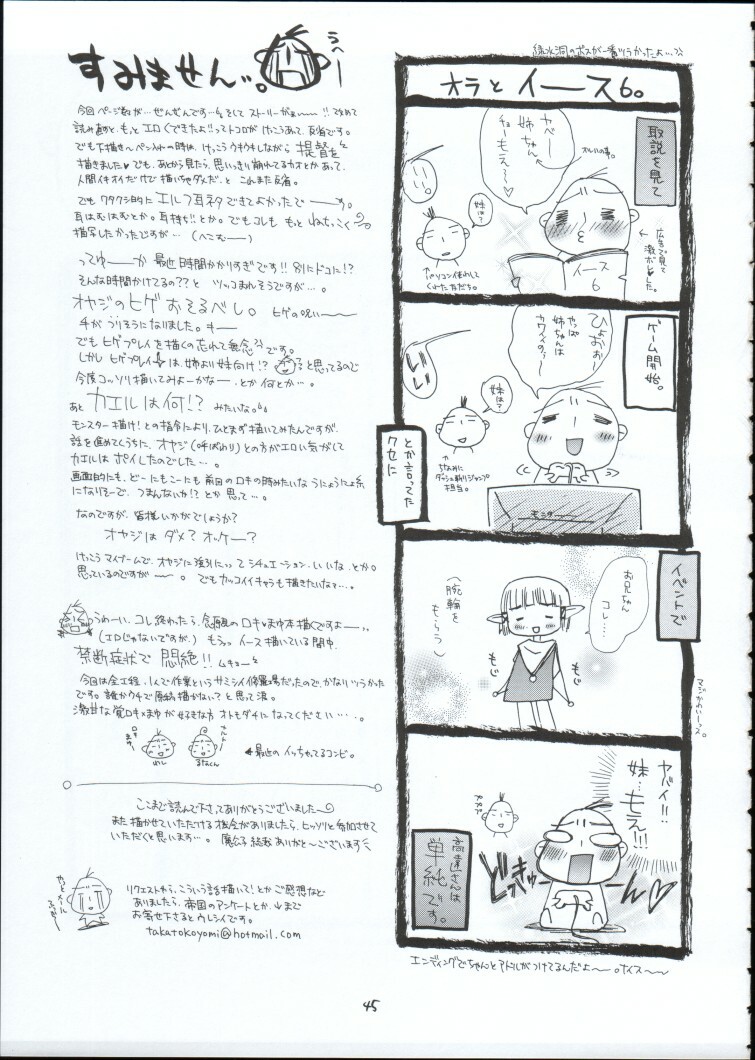 緑水洞のボスが一番ツラかったよ…
オラとイース6。
取説を見て
ヤベー
姉ちゃん
チョーもえ〜〜
オルハの事。
いい。
妹は?
イース
6
広告で見て
激ボレした。
↑パソコン使わして
くれた友だち。
ゲーム開始。
ひょおぉー
やっぱ
姉ちゃんは
カワエのぅ〜
いい
妹は?
ちなみに
ダッシュ斬りジャンプ
担当。
モニター
とか言ってた
クセに
イベントで
お兄ちゃん
コレ…
(腕輪を
もらう)
もじ
もじ
マジかわいーッス。
ヤバイ!!
妹…もえ!!!
どきゅーーん♡
高遠さんは
単純です。
エンディングでちゃんとアドルがつけてるんだよ〜〜。ナイス〜〜
すみません…。
うへー
今回ページ数が…ぜんぜんです…。そして ストーリーがぁー!! 改めて
読み直すと、もっと エロくできたよ!!ってトコロが けっこうあって、反省です。
でも下描き〜ペン入れの時は、けっこう ウキウキしながら 提督を
描きました♥ でも、あとから見たら、思いっきり崩れてるカオとかあって、
人間イキオイだけで描いちゃダメだ。と これまた反省。
でも ワタクシ的に エルフ耳ネタできてよかったでーーす。
耳はむはむとか。耳持ち!!とか。でもコレも もっと ねちっこく
描写したかったですが… (へこむ——)
ってゆーーか 最近 時間かかりすぎです!! 別にドコに!?
そんな時間かけてるの?? と ツッコまれそうですが…。
オヤジのヒゲ おそるべし。 ヒゲの呪い———
手がつりそうになりました。キー
でも ヒゲプレイを描くの忘れて無念です。
しかし ヒゲプレイは、姉より妹向け!? と思ってるので
今度コッソリ描いてみよーかなー、とか何とか…。
あと カエルは何!? みたいな。
モンスター描け!との指令により、ひとまず描いてみたんですが、
話を進めてくうちに、オヤジ(呼ばわり)との方がエロい気がして
カエルは ポイしたのでした…。
画面的にも、どーにもこーにも 前回のロキの時みたいな うにょうにょ系
になりそーで、つまんないか!? とか 思って…。
なのですが、皆様いかがでしょうか?
オヤジは ダメ? オッケー?
けっこう マイブームで、オヤジに強引に…って シチュエーション、いいな、とか。
思っているのですが——。 でもカッコイイキャラも描きたいなァ…。
うわーい、コレ終わったら、念願の ロキ×まゆ本描くですよー…
(エロじゃないですが。) もうっ イース描いている間中、
禁断症状で 悶絶!! ムキュー
今回は全工程、1人で作業というサミシイ修羅場だったので、かなりツラかった
です。誰かウチで原稿描かない? と思って涙。
激甘な覚ロキ×まゆが好きな方 オトモダチに なってください…。
ロキ
まゆ
ナルト
めし
るなくん
←最近の イッちゃってるコンビ。
ここまで読んで下さってありがとうございました〜
また描かせていただける機会がありましたら、ヒッソリと参加させて
いただくと思います…。
リクエストやら、こういう話描いて!とか ご感想など
ありましたら、帝国のアンケートとか、↓まで
お寄せ下さると ウレシイです。
takatokoyomi@hotmail.com
45